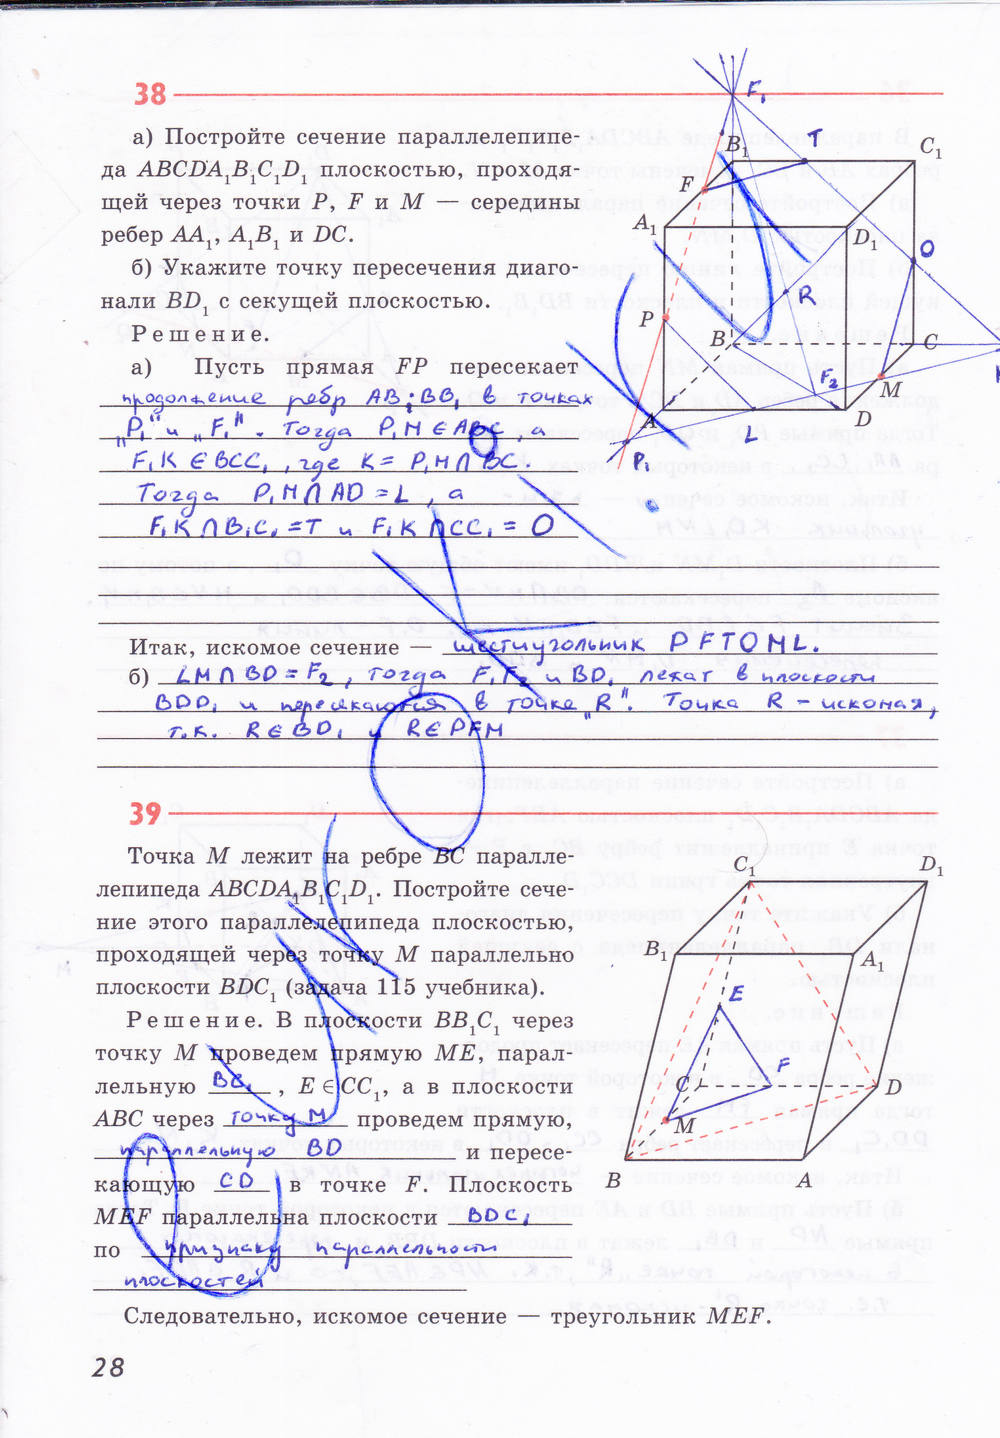 38
а) Постройте сечение параллелепипе-
да ABCDA₁B₁C₁D₁ плоскостью, проходя-
щей через точки P, F и M — середины
ребер AA₁, A₁B₁ и DC.
б) Укажите точку пересечения диаго-
нали BD₁ с секущей плоскостью.
Решение.
а) Пусть прямая FP пересекает
продолжение ребр AB и BB₁ в точках
„P₁“ и „F₁“. Тогда P₁M ∈ ABC, а
F₁K ∈ BCC₁, где K = P₁M ∩ BC.
Тогда P₁M ∩ AD = L, а
F₁K ∩ B₁C₁ = T и F₁K ∩ CC₁ = O
Итак, искомое сечение — шестиугольник PFTOML.
б) LM ∩ BD = F₂, тогда F₁F₂ и BD₁ лежат в плоскости
BDD₁ и пересекаются в точке „R“. Точка R – искомая,
т.к. R ∈ BD₁ и R ∈ PFM
F₁
B₁
T
C₁
F
A₁
D₁
O
R
P
B
C
F₂
M
A
L
D
P₁
39
Точка M лежит на ребре BC паралле-
лепипеда ABCDA₁B₁C₁D₁. Постройте сече-
ние этого параллелепипеда плоскостью,
проходящей через точку M параллельно
плоскости BDC₁ (задача 115 учебника).
Решение. В плоскости BB₁C₁ через
точку M проведем прямую ME, парал-
лельную BC₁, E ∈ CC₁, а в плоскости
ABC через точку M проведем прямую,
параллельную BD и пересе-
кающую CD в точке F. Плоскость
MEF параллельна плоскости BDC₁
по признаку параллельности
плоскостей
Следовательно, искомое сечение — треугольник MEF.
C₁
D₁
B₁
A₁
E
F
C
D
M
B
A
28